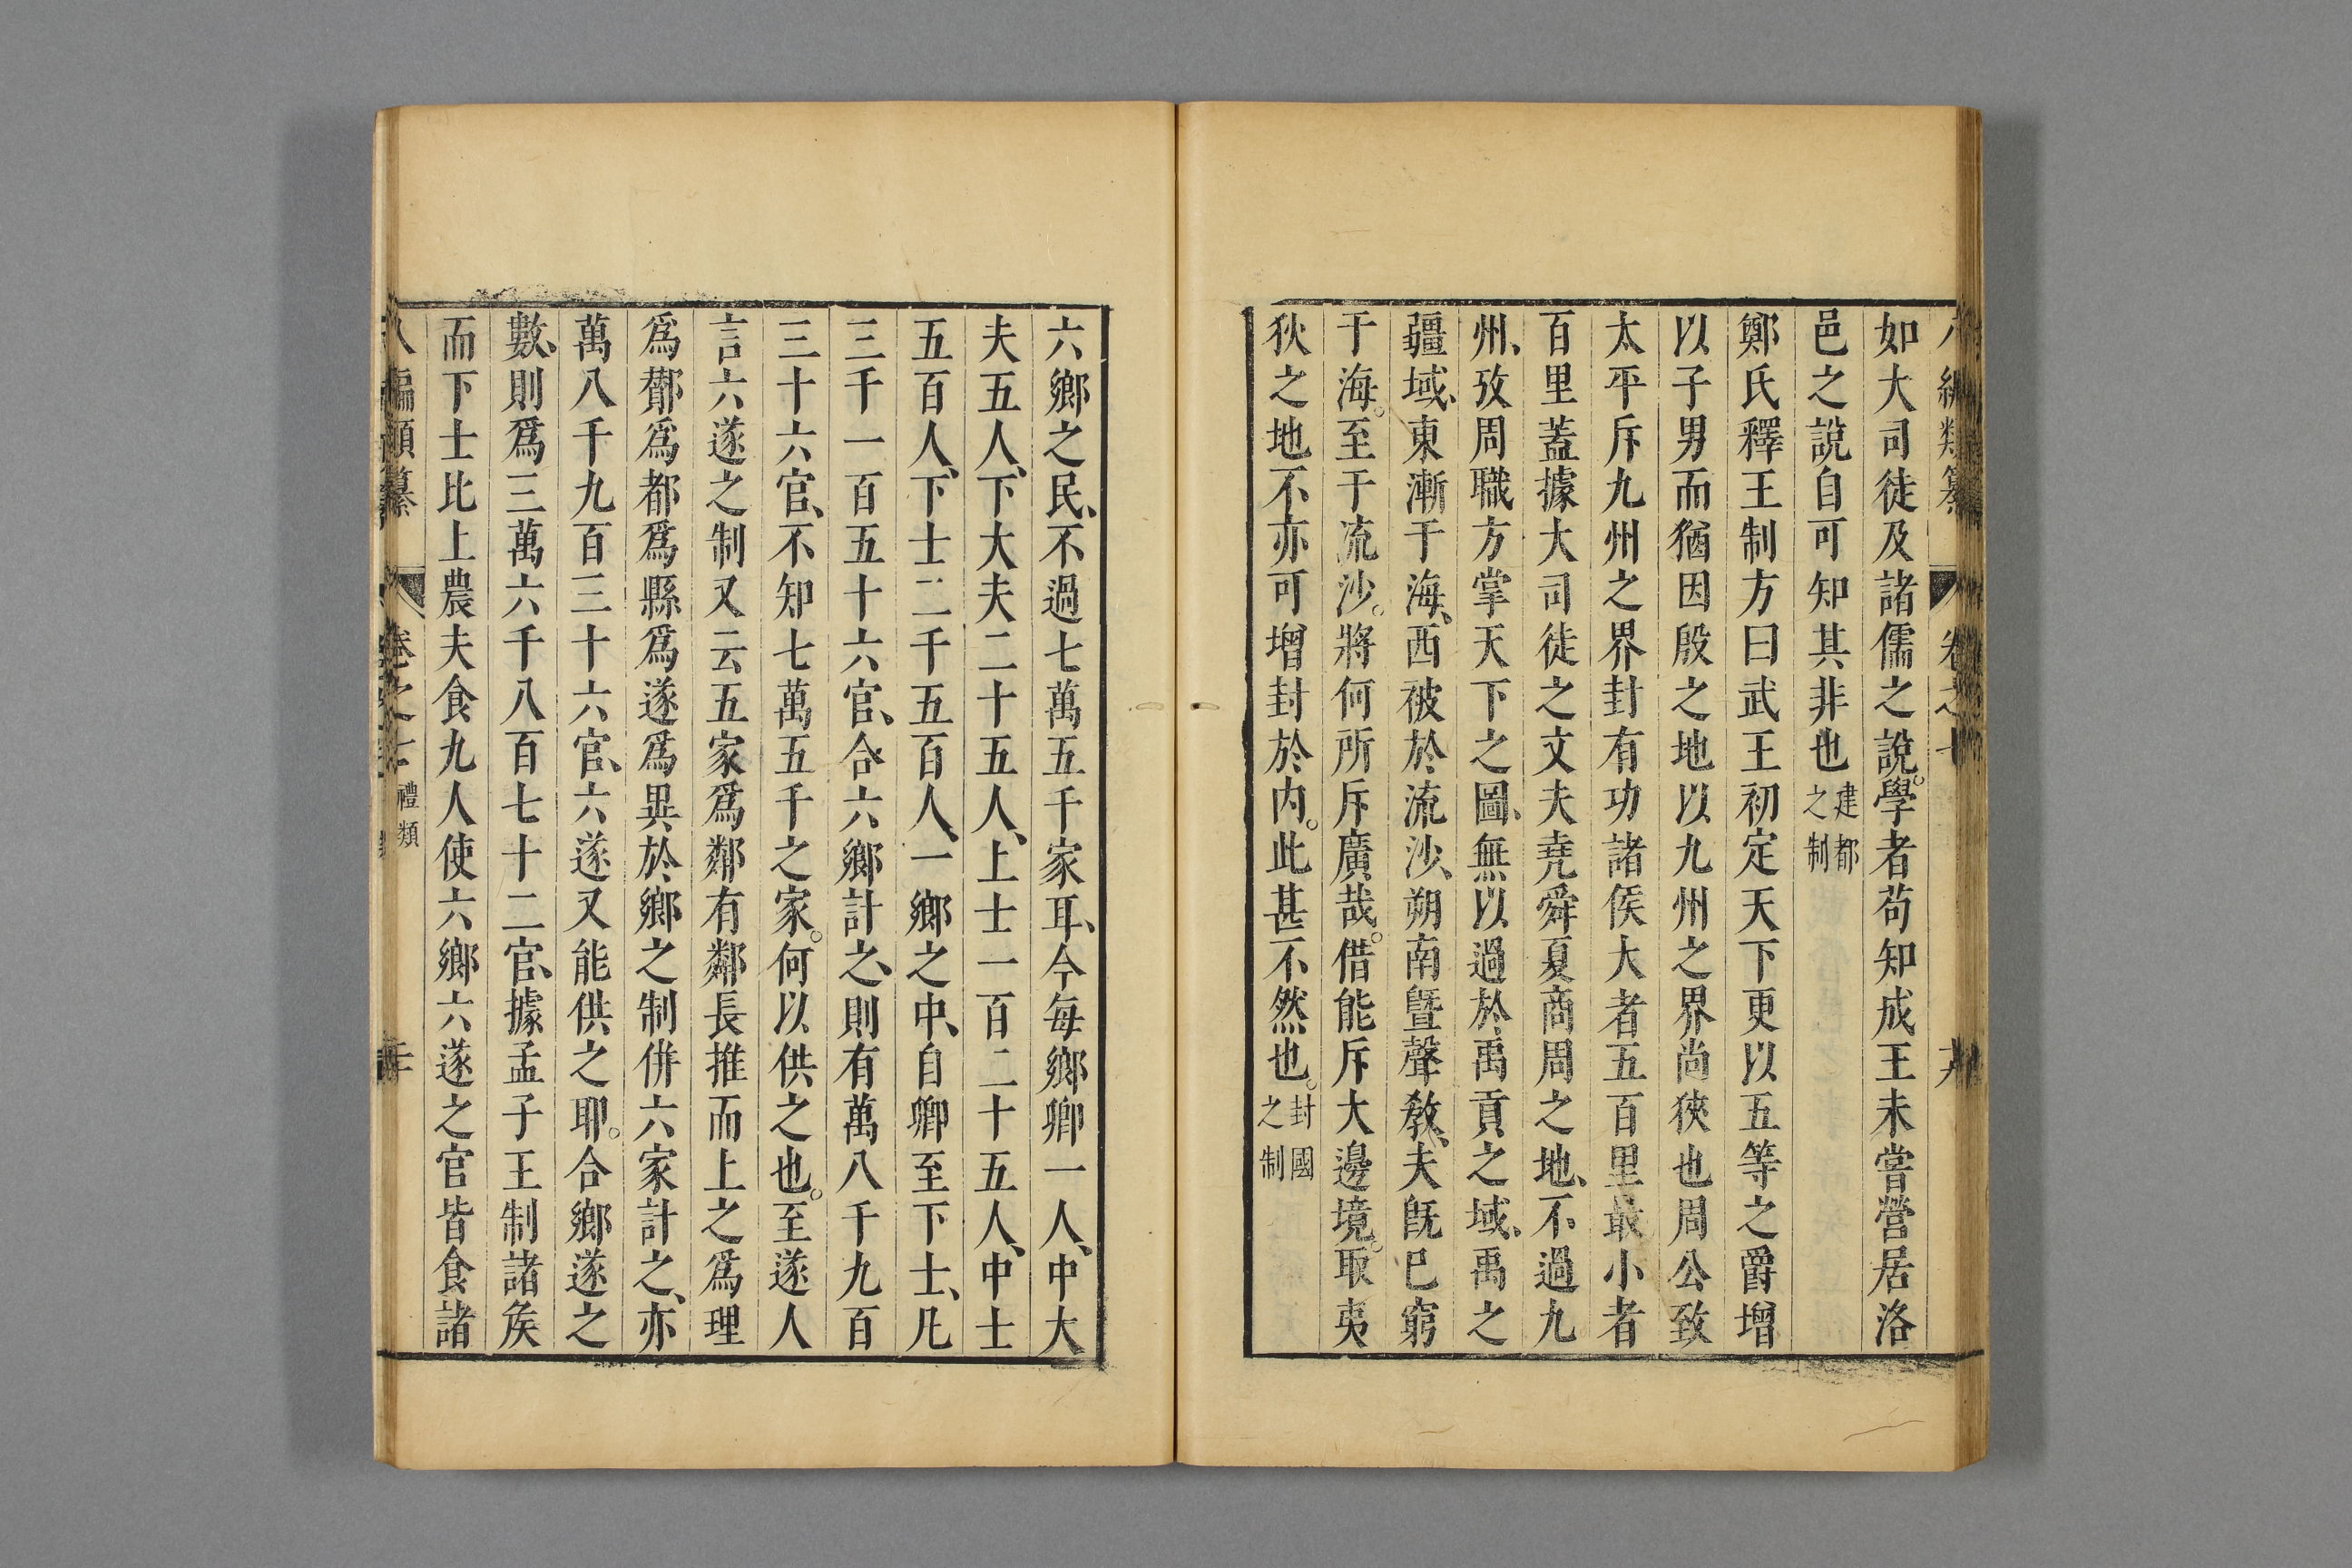 八編類纂 卷之七 十九
如大司徒及諸儒之說。學者苟知成王未嘗營居洛
邑之說自可知其非也建都之制
鄭氏釋王制方曰武王初定天下更以五等之爵增
以子男而猶因殷之地以九州之界尚狹也周公致
太平斥九州之界封有功諸侯大者五百里最小者
百里蓋據大司徒之文夫堯舜夏商周之地、不過九
州、攷周職方掌天下之圖、無以過於禹貢之域、禹之
疆域、東漸于海、西被於流沙、朔南曁聲敎、夫旣已窮
于海。至于流沙。將何所斥廣哉。借能斥大邊境。取夷
狄之地不亦可增封於內。此甚不然也。封國之制
六鄉之民、不過七萬五千家耳、今每鄉卿一人、中大
夫五人、下大夫二十五人、上士一百二十五人、中士
五百人、下士二千五百人、一鄉之中、自卿至下士、凡
三千一百五十六官、合六鄉計之、則有萬八千九百
三十六官、不知七萬五千之家。何以供之也。至遂人
言六遂之制又云五家爲鄰有鄰長推而上之爲理
爲酇爲都爲縣爲遂爲異於鄉之制併六家計之、亦
萬八千九百三十六官、六遂又能供之耶。合鄉遂之
數、則爲三萬六千八百七十二官、據孟子王制諸矦
而下士比上農夫食九人使六鄉六遂之官皆食諸
八編類纂 卷之七 禮類 二十